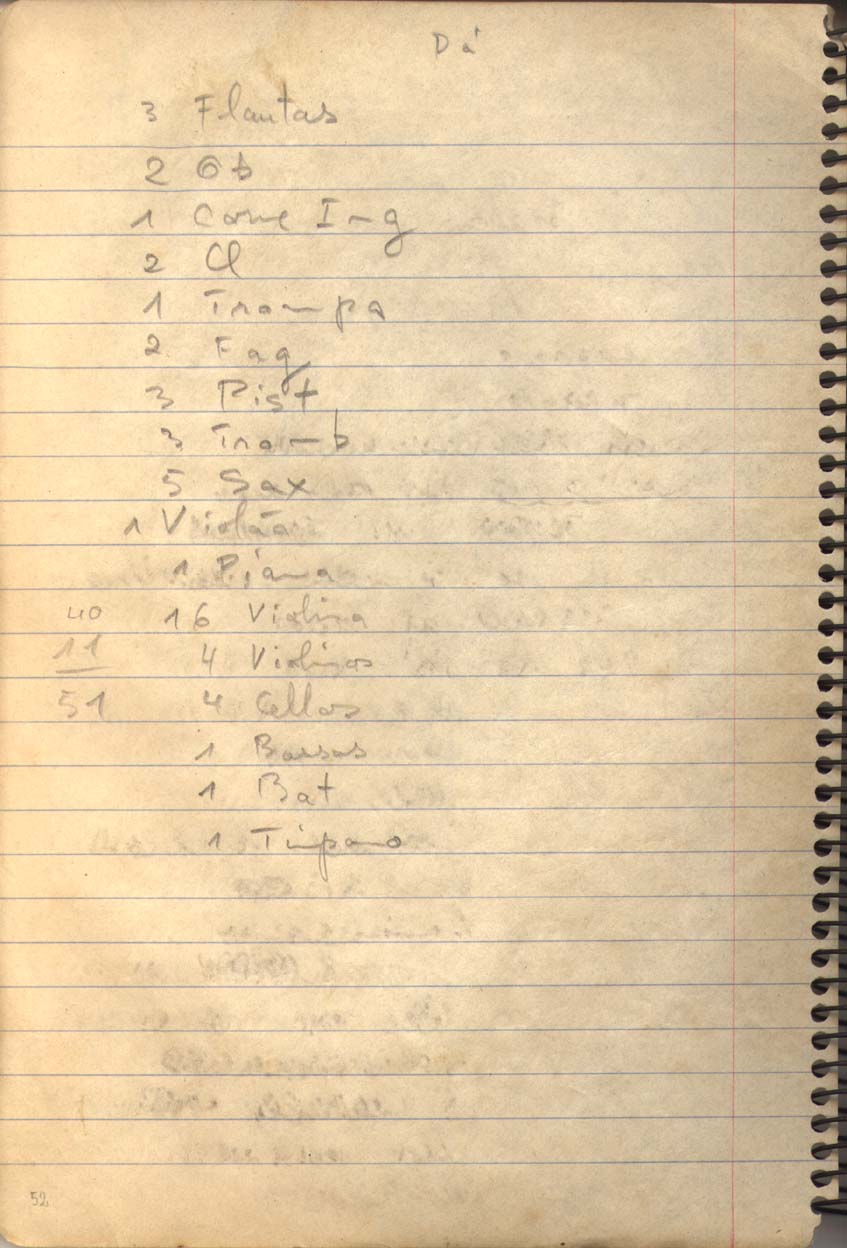 Dá
3 Flautas
2 Ob
1 Corne Ing
2 Cl
1 Trompa
2 Fag
3 Pist
3 Tromb
5 Sax
1 Violão
1 Piano
40 16 Violino
11 4 Violinos
51 4 Cellos
1 Baixos
1 Bat
1 Tímpano
52